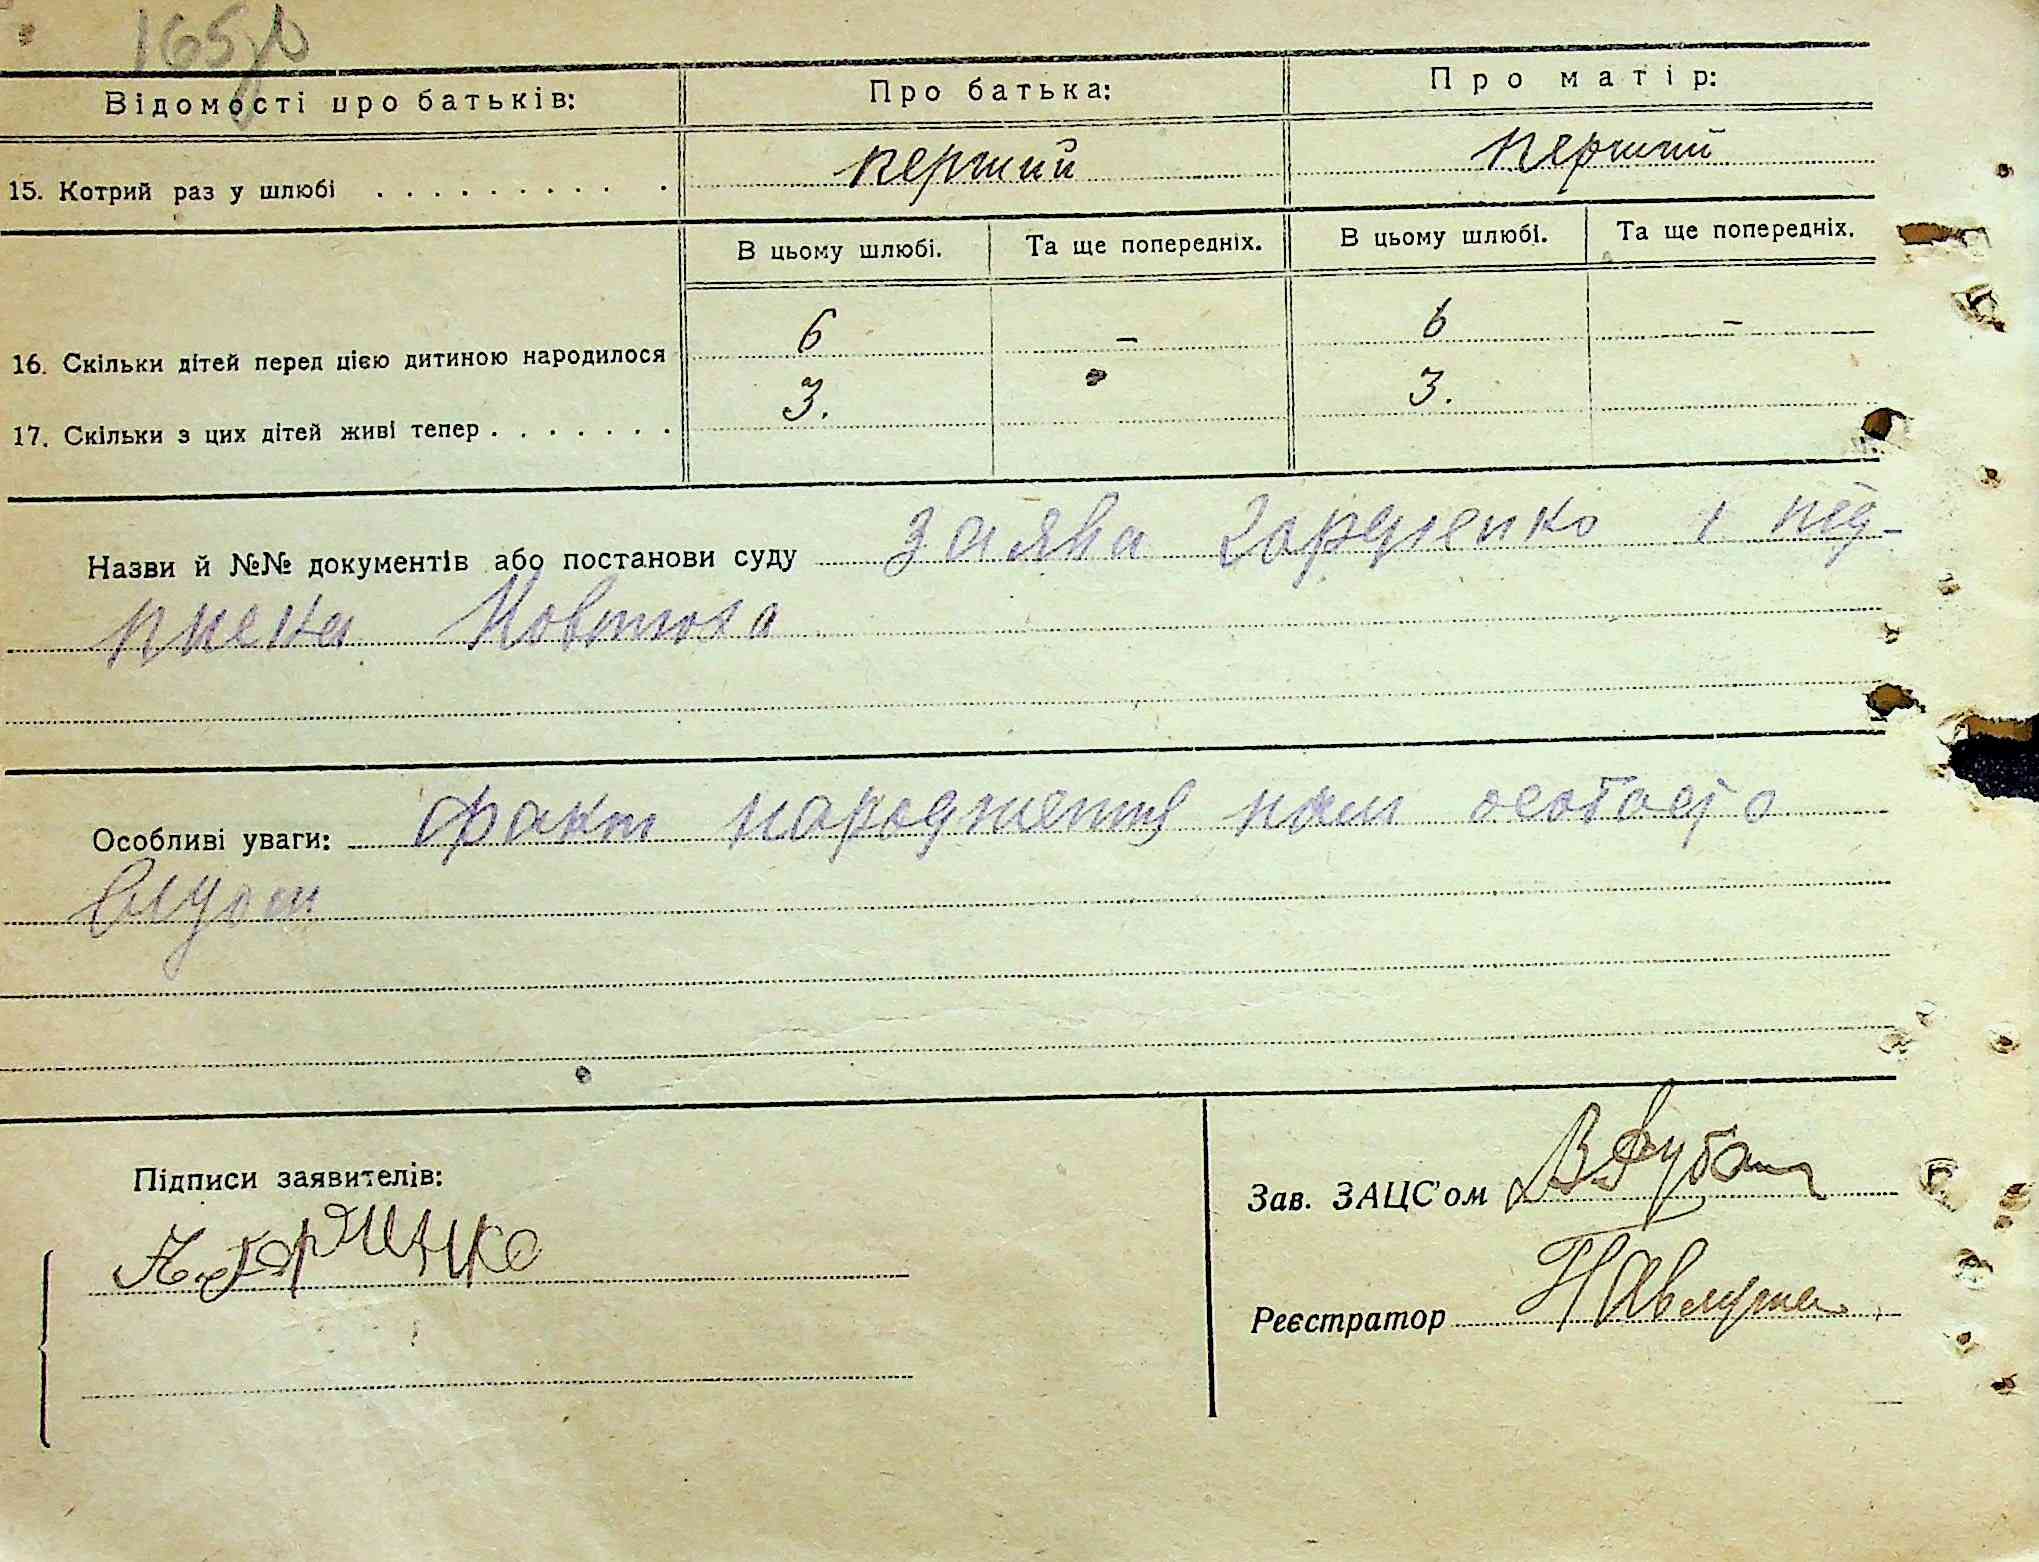 165зв
Відомості про батьків: Про батька: Про матір:
15. Котрий раз у шлюбі . . . . . . . . . . перший перший
В цьому шлюбі. Та ще попередніх. В цьому шлюбі. Та ще попередніх.
16. Скільки дітей перед цією дитиною народилося 6 – 6 –
17. Скільки з цих дітей живі тепер . . . . . . . 3. 3.
Назви й №№ документів або постанови суду заява Гордиенко і під-
писка
Особливі уваги: факт народження нам особасто
відом
Підписи заявителів:
Зав. ЗАЦС'ом
Реєстратор